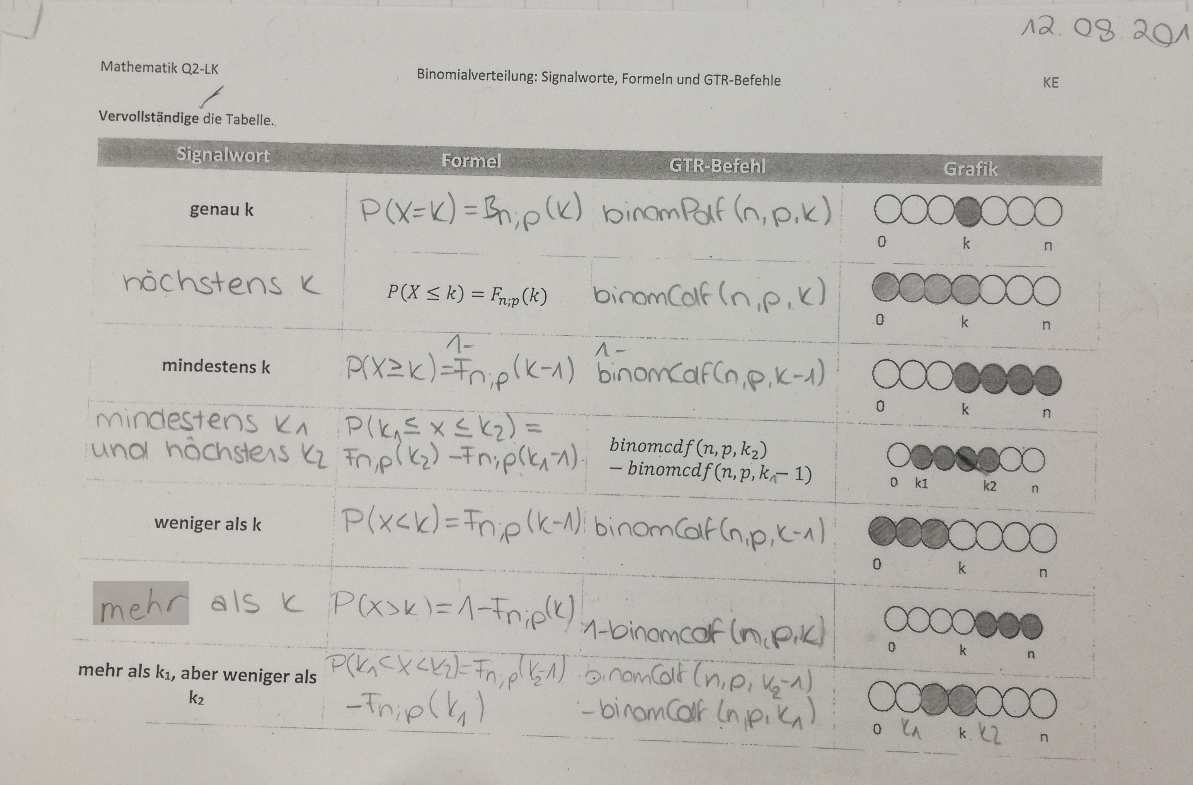 12.08.201
Mathematik Q2-LK
Binomialverteilung: Signalworte, Formeln und GTR-Befehle
KE
Vervollständige die Tabelle.
Signalwort Formel GTR-Befehl Grafik
genau k P(X=k)=Bn;p(k) binomPdf(n,p,k)
0 k n
höchstens k P(X ≤ k) = Fn;p(k) binomCdf(n,p,k)
0 k n
1- 1-
mindestens k P(X≥k)=Fn;p(k-1) binomCdf(n,p,k-1)
0 k n
mindestens k1 P(k1≤ x ≤ k2) =
und höchstens k2 Fn;p(k2) -Fn;p(k1-1)
binomcdf(n, p, k2)
− binomcdf(n, p, k1− 1)
0 k1 k2 n
weniger als k P(x<k)=Fn;p(k-1) binomCdf(n,p,k-1)
0 k n
mehr als k P(x>k)=1-Fn;p(k) 1-binomcdf(n,p,k)
0 k n
mehr als k1, aber weniger als
k2
P(k1<x<k2)=Fn;p(k2-1)
-Fn;p(k1)
binomCdf(n,p,k2-1)
-binomCdf(n,p,k1)
0 k1 k k2 n